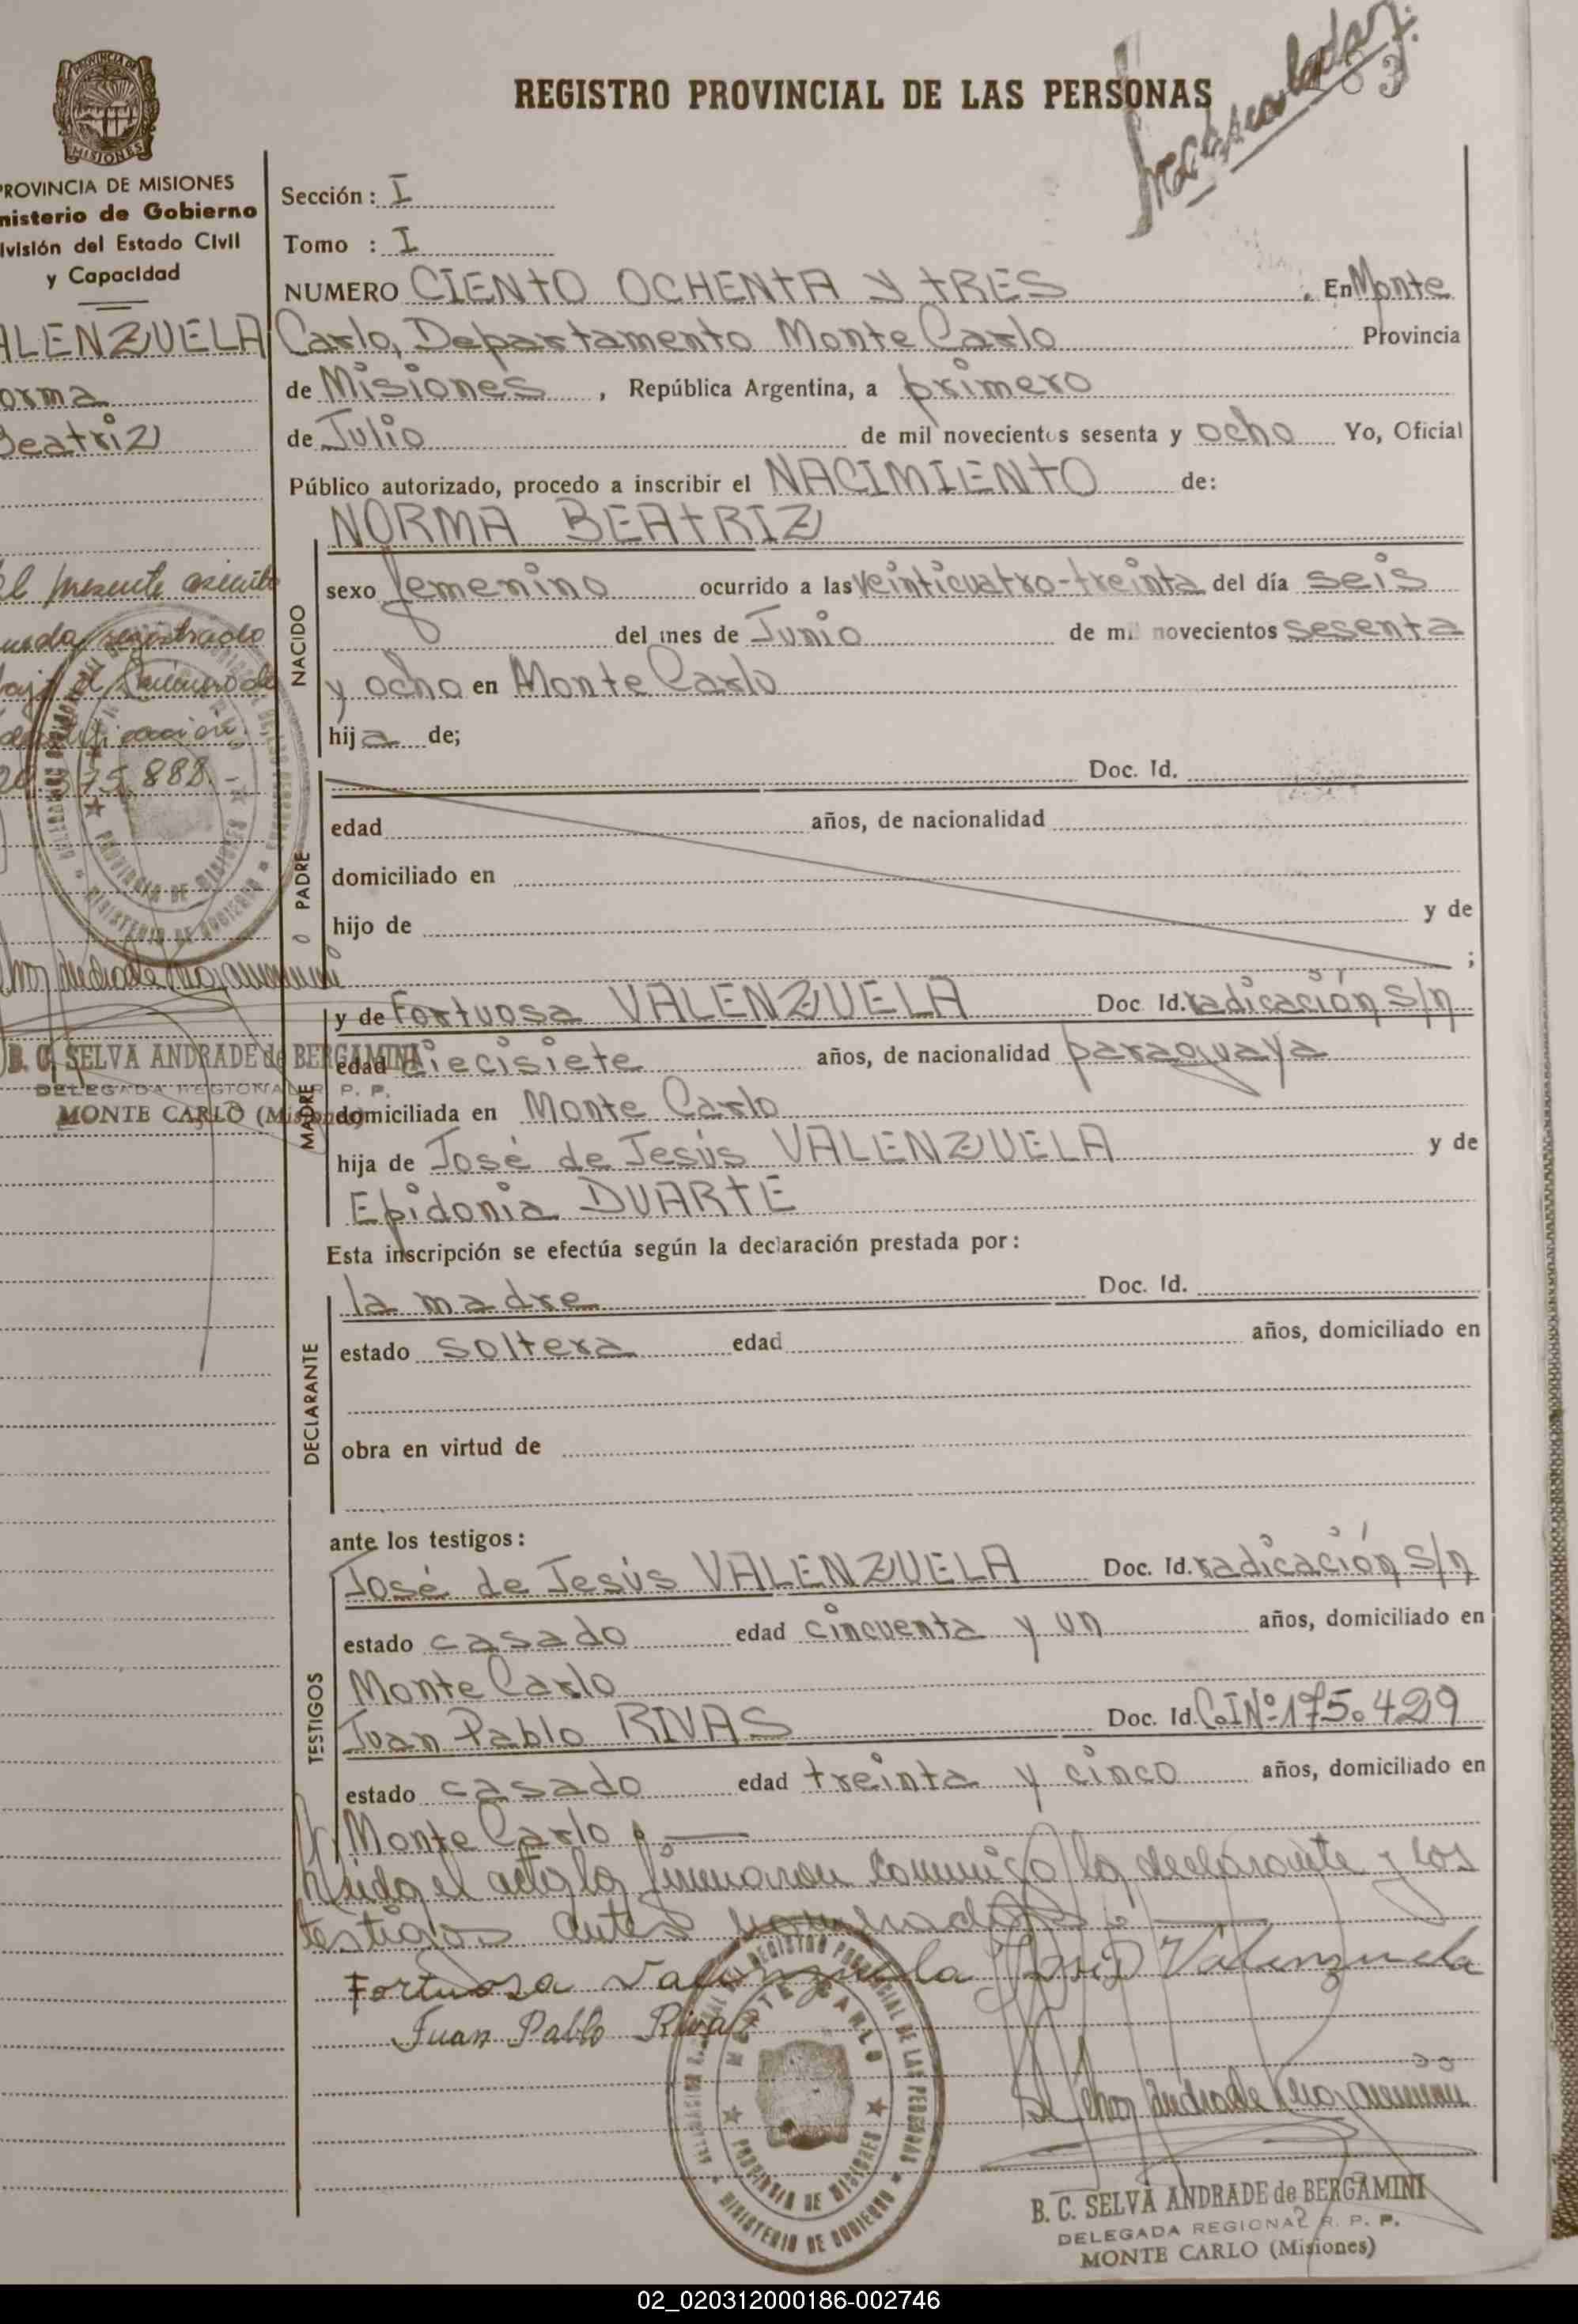 REGISTRO PROVINCIAL DE LAS PERSONAS
PROVINCIA DE
MISIONES
PROVINCIA DE MISIONES
nisterio de Gobierno
ivisión del Estado Civil
y Capacidad
ALENZUELA
orma
Beatriz
el presente
registrado
20.375.888.-
B. C. SELVA ANDRADE de BERGAMINI
DELEGADA REGIONAL R. P. P.
MONTE CARLO (Misiones)
Sección: I
Tomo : I
NUMERO CIENTO OCHENTA Y TRES . En Monte
Carlo, Departamento Monte Carlo Provincia
de Misiones , República Argentina, a primero
de Julio de mil novecientos sesenta y ocho Yo, Oficial
Público autorizado, procedo a inscribir el NACIMIENTO de:
NACIDO
NORMA BEATRIZ
sexo femenino ocurrido a las veinticuatro-treinta del día seis
del mes de Junio de mil novecientos sesenta
y ocho en Monte Carlo
hija de;
PADRE
Doc. Id.
edad años, de nacionalidad
domiciliado en
hijo de y de
;
MADRE
y de Fortuosa VALENZUELA Doc. Id. radicación s/n
edad diecisiete años, de nacionalidad paraguaya
domiciliada en Monte Carlo
hija de José de Jesús VALENZUELA y de
Epidonia DUARTE
Esta inscripción se efectúa según la declaración prestada por:
DECLARANTE
la madre Doc. Id.
estado soltera edad años, domiciliado en
obra en virtud de
ante los testigos:
TESTIGOS
José de Jesús VALENZUELA Doc. Id. radicación s/n
estado casado edad cincuenta y un años, domiciliado en
Monte Carlo
Juan Pablo RIVAS Doc. Id. C.I Nº 175.429
estado casado edad treinta y cinco años, domiciliado en
Monte Carlo.
Leida el acta la firmaron conmigo la declarante y los
testigos antes nombrados.
Fortuosa Valenzuela José D Valenzuela
Juan Pablo Rivas
MONTE CARLO
PROVINCIA DE MISIONES
MINISTERIO DE GOBIERNO
B. C. SELVA ANDRADE de BERGAMINI
DELEGADA REGIONAL R. P. P.
MONTE CARLO (Misiones)
02_020312000186-002746